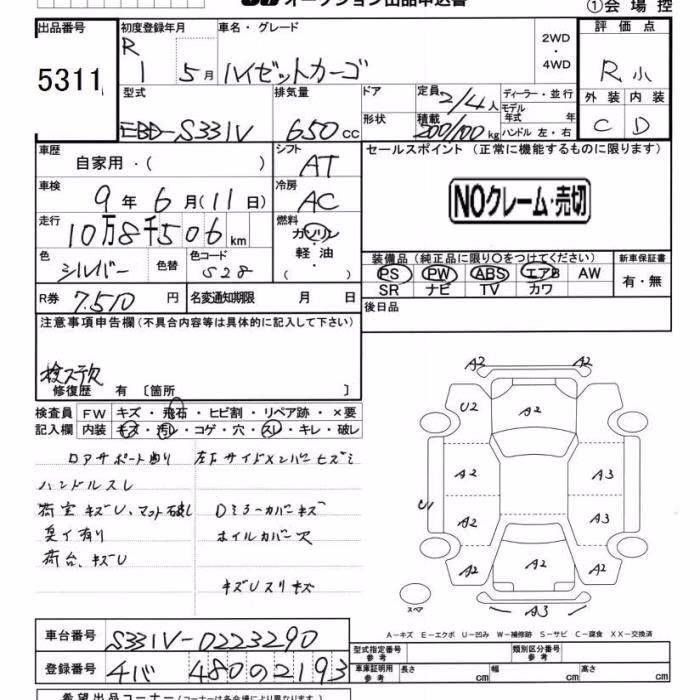 オークション出品申込書
①会場控
出品番号 5311
初度登録年月 R 1 5月
車名・グレード ハイゼットカーゴ
2WD・4WD
評価点 R小
型式 EBD-S331V
排気量 650cc
ドア
形状
定員 2/4人
積載 200/100kg
ディーラー・並行
モデル年式 年
ハンドル 左・右
外装 内装
C D
車歴 自家用・( )
シフト AT
セールスポイント(正常に機能するものに限ります)
NOクレーム・売切
車検 9年6月(11日)
冷房 AC
走行 10万8千506km
燃料 ガソリン・軽油・(
色 シルバー 色替
色コード S28
装備品(純正品に限り○をつけてください)
PS PW ABS エアB AW
SR ナビ TV カワ
新車保証書 有・無
R券 7,510円
名変通知期限 月 日
後日品
注意事項申告欄(不具合内容等は具体的に記入して下さい)
検ステ欠
修復歴 有〔箇所 〕
検査員記入欄
FW キズ・飛石・ヒビ割・リペア跡・×要
内装 キズ・汚レ・コゲ・穴・スレ・キレ・破レ
コアサポート曲り 左下サイドメンバーヒズミ
ハンドルスレ
荷室キズU、マット破レ Dミラーカバーキズ
臭イ有り ホイルカバー欠
荷台、キズU
キズUスリキズ
A2 A2
U2 A2
A2 A3
U1
A2 A3
A2 A2 A2
スペア
A3
A-キズ E-エクボ U-凹み W-補修跡 S-サビ C-腐食 XX-交換済
車台番号 S331V-0223290
登録番号 480の2193
型式指定番号 参考
類別区分番号 参考
車庫証明用 参考 長さ cm 幅 cm 高さ cm
希望出品コーナー